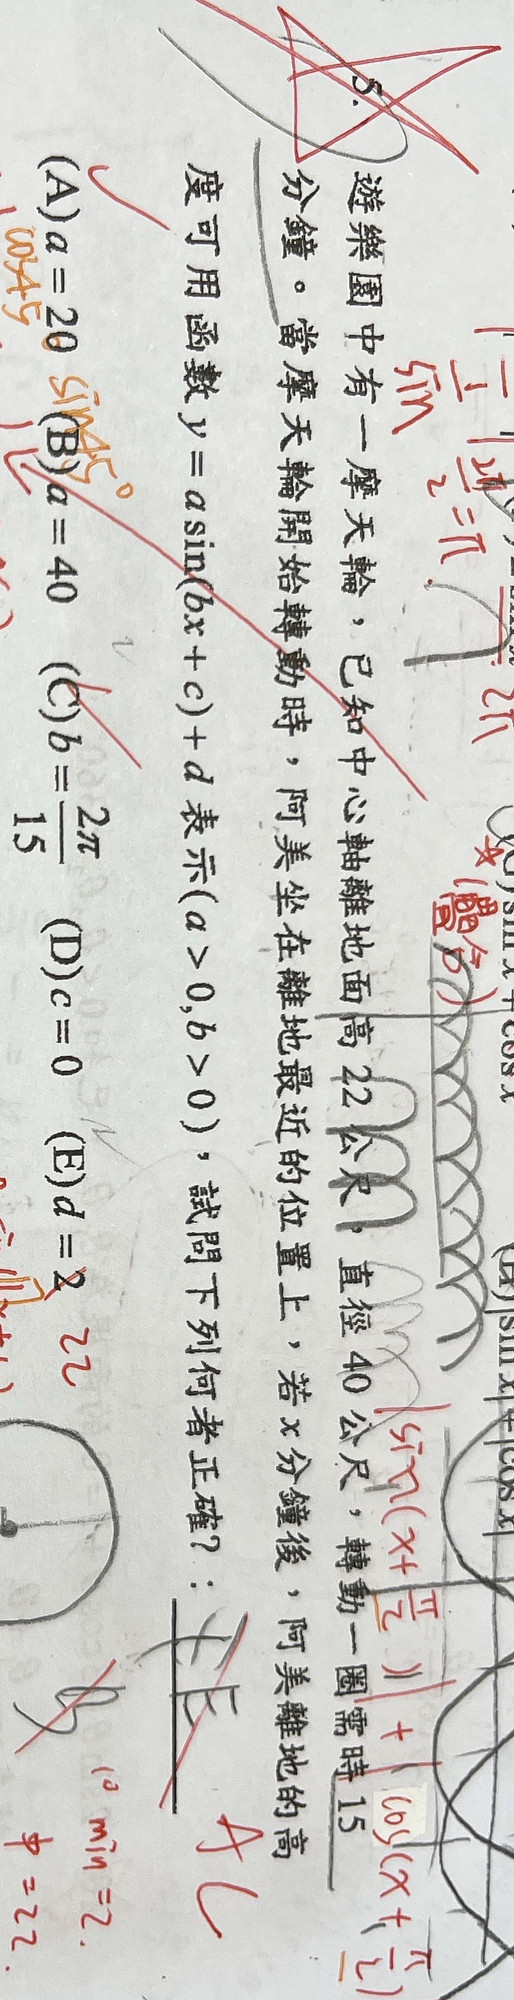 (G) sin x + cos x
(H) |sin x| + |cos x|
sin
2π/2 = π
2π
|sin(x+π/2)| + |cos(x+π/2)|
5. 遊樂園中有一摩天輪，已知中心軸離地面高 22 公尺，直徑 40 公尺，轉動一圈需時 15
分鐘。當摩天輪開始轉動時，阿美坐在離地最近的位置上，若 x 分鐘後，阿美離地的高
度可用函數 y = a sin(bx + c) + d 表示(a > 0, b > 0)，試問下列何者正確？：
AC
(A) a = 20 (B) a = 40 (C) b = 2π/15 (D) c = 0 (E) d = 2 22
cos45 sin45°
min = 2.
中 = 22.